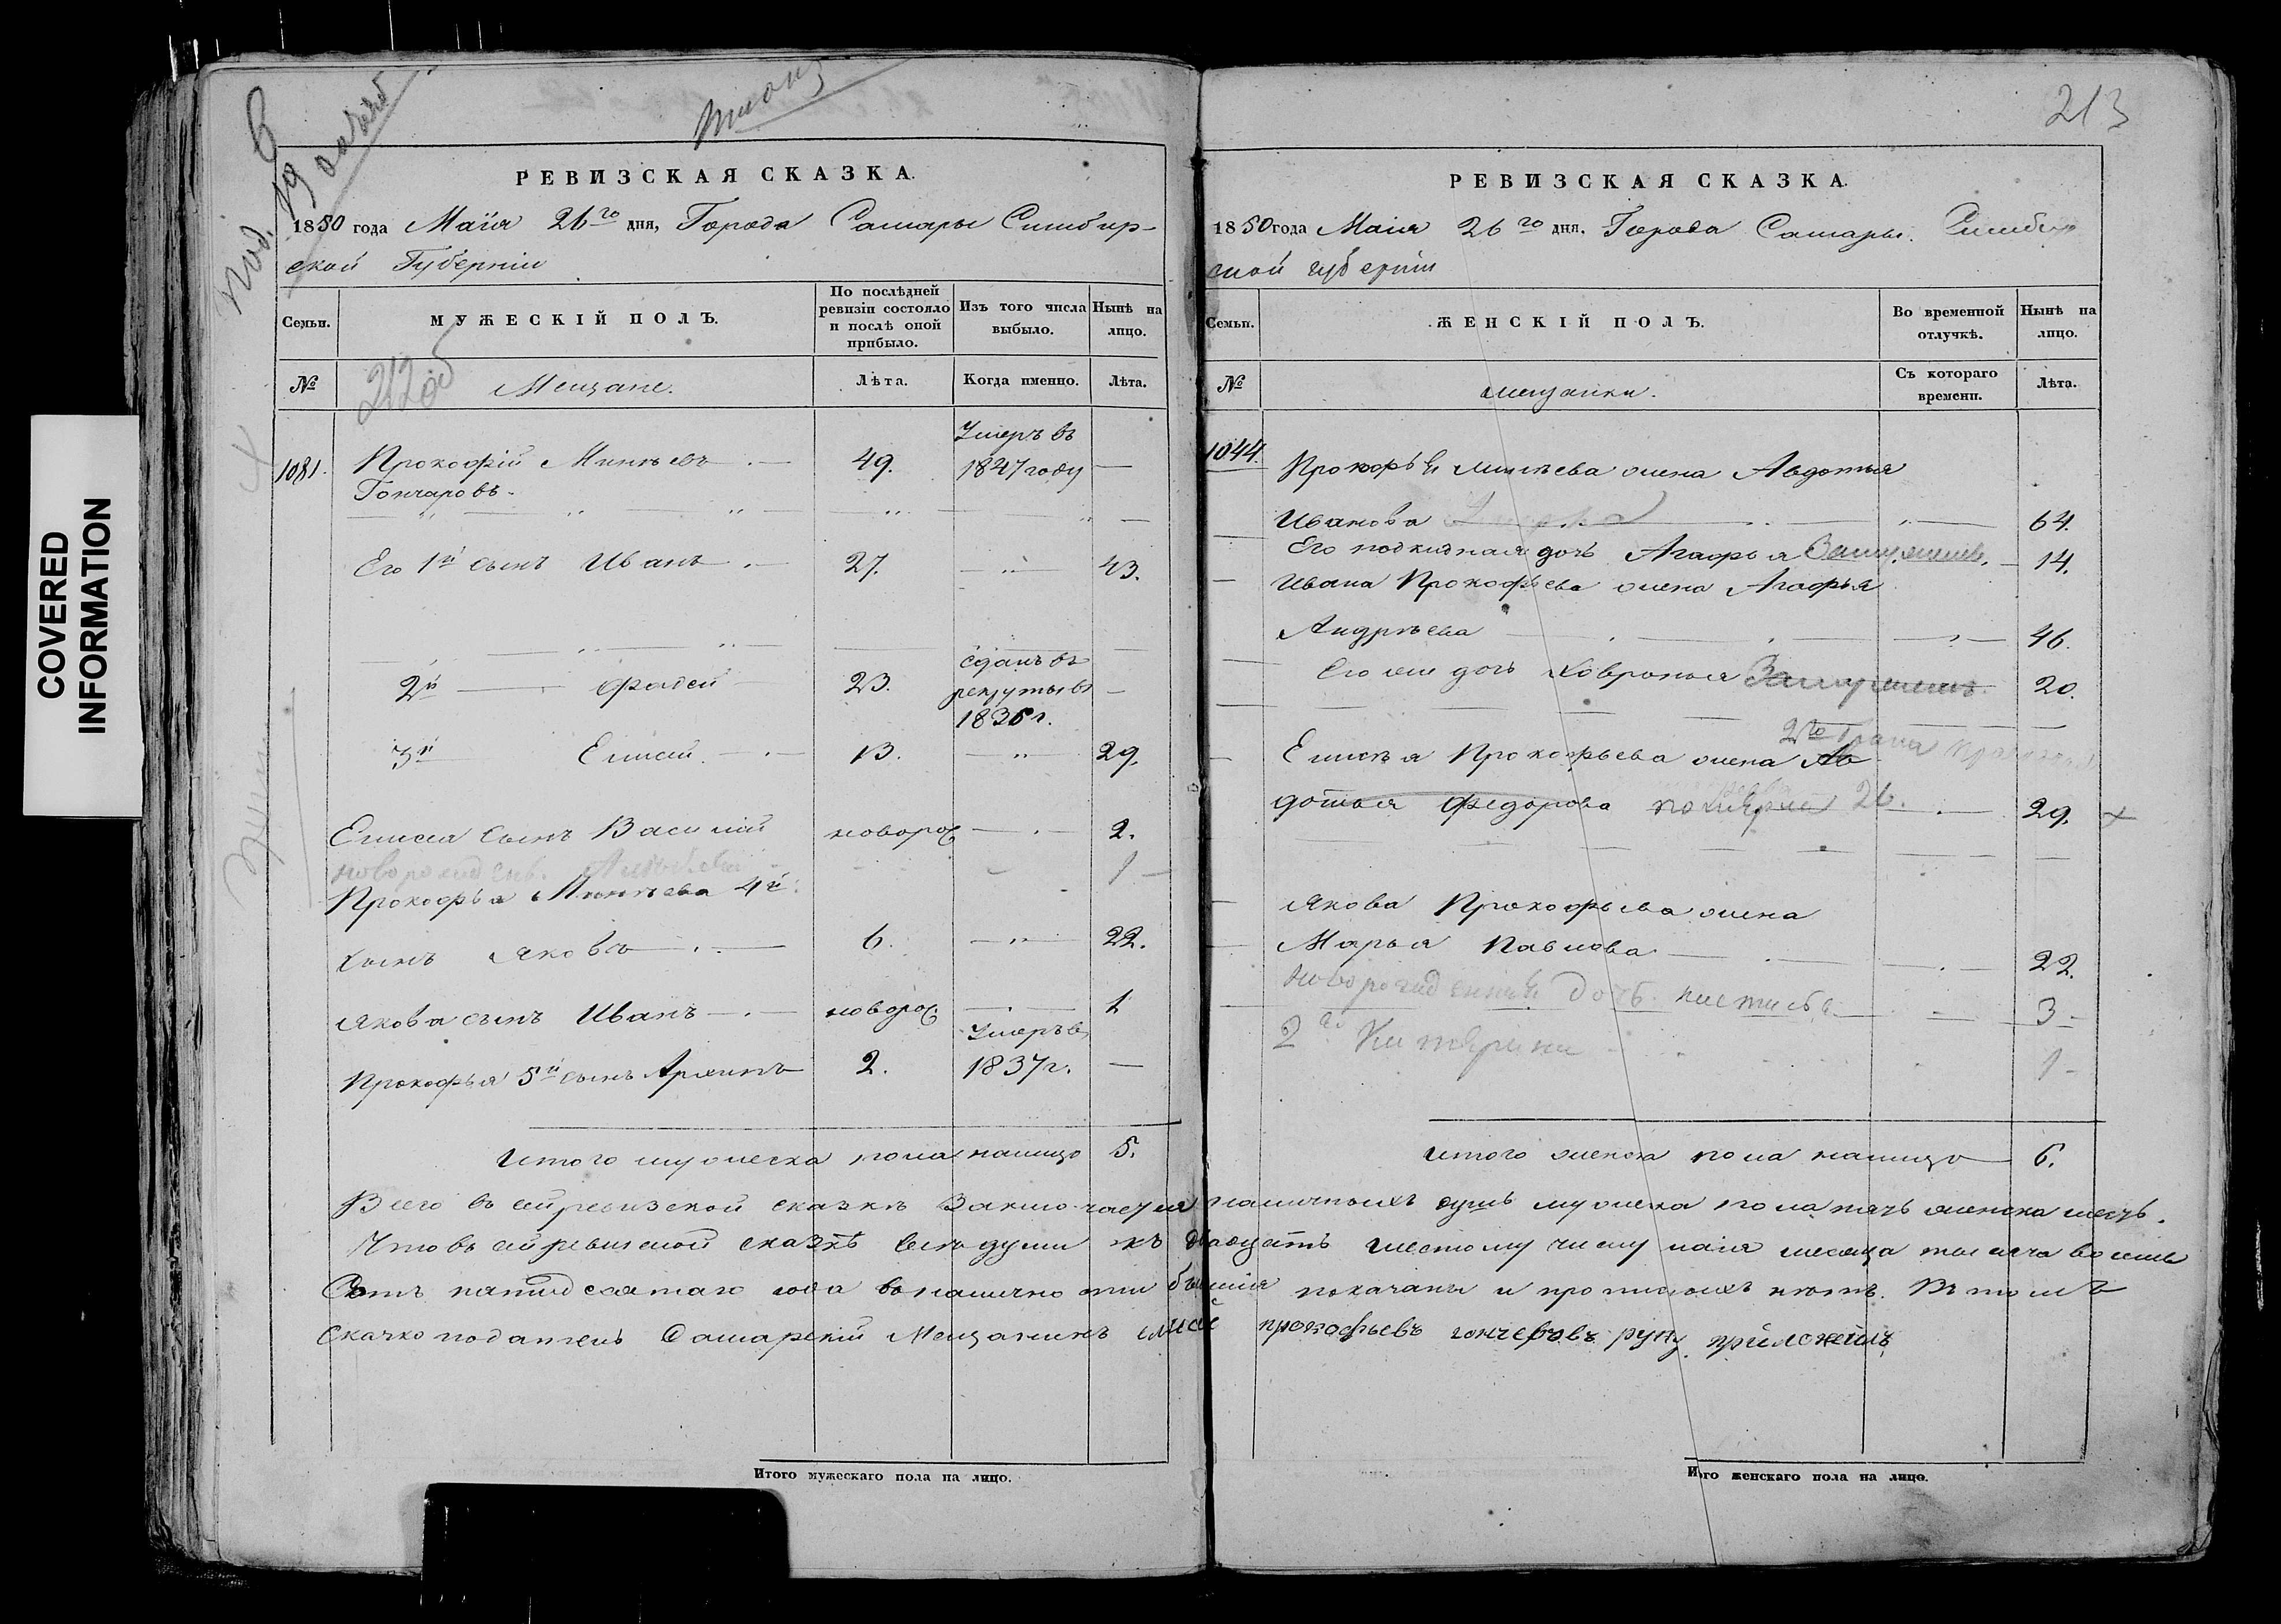 COVERED
INFORMATION
213
212об
РЕВИЗСКАЯ СКАЗКА.
1850 года Маія 26го дня, Города Самары Симбир-
ской Губерніи
Семьи.
МУЖЕСКІЙ ПОЛЪ.
По послѣдней
ревизіи состояло
и послѣ оной
прибыло.
Изъ того числа
выбыло.
Нынѣ на
лицо.
№
Мещане.
Лѣта.
Когда именно.
Лѣта.
1081. Прокофій Минѣевъ 49. Умеръ въ 1847 году —
Гончаровъ.
Его 1й сынъ Иванъ 27. — 43.
2й — Фадей 23. сданъ въ рекруты въ 1835 г. —
3й Елисей 13. — 29.
Елисея сынъ Василий новорож — 2.
новорожденъ. Алексей 1
Прокофья Минѣева 4й
сынъ Яковъ 6. — 22.
Якова сынъ Иванъ новорож. — 1
Прокофья 5й сынъ Архипъ 2. Умеръ въ 1837 г. —
Итого мужеска пола налицо 5.
Итого мужескаго пола на лицо.
РЕВИЗСКАЯ СКАЗКА.
1850 года Маія 26го дня. Города Самары. Симбир
ской губерніи
Семьи.
ЖЕНСКІЙ ПОЛЪ.
Во временной
отлучкѣ.
Нынѣ на
лицо.
№
мещанки.
Съ котораго
времени.
Лѣта.
1044. Прокофья Минѣева жена Авдотья
Иванова 64.
Его подкидная дочь Агафья Замужемъ. 14.
Ивана Прокофьева жена Агафья
Андрѣева 46.
Его же дочь Хавронья Замужемъ 20.
2го брака
Елисѣя Прокофьева жена Ав
дотья Федорова 26. 29.
Якова Прокофьева жена
Марья Павлова 22.
новорожденная дочь 3
2я Катерина 1
итого женска пола налицо 6.
Всего въ сей ревизской сказкѣ Заключается наличныхъ душъ мужеска пола пять женска шесть.
Что въ сей ревизской сказкѣ всѣ души къ двадцать шестому числу маія месяца тысяча восемь
Сотъ пятидесятаго года въ наличности бывшія показаны и прописныхъ нѣтъ. Въ томъ
сказко податель Самарскій Мещанинъ елисей прокофьевъ гончеровъ руку приложилъ
Итого женскаго пола на лицо.